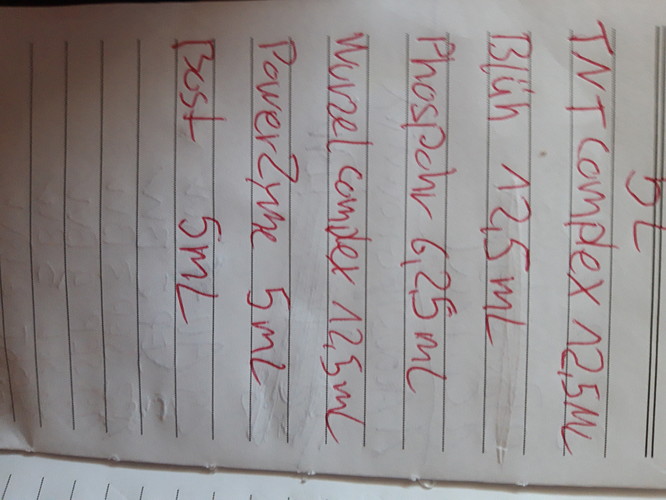 5L
TNT Complex 12,5mL
Blüh 12,5mL
Phospohr 6,25mL
Wurzel complex 12,5mL
PowerZyme 5mL
Bost 5mL